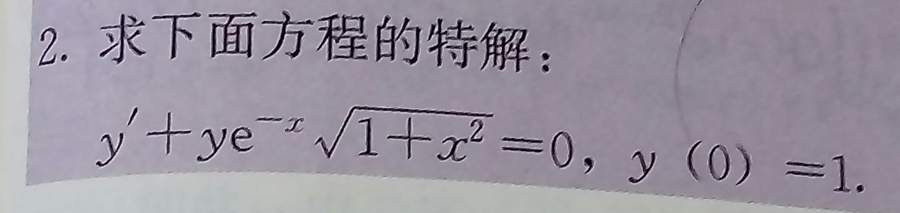 2. 求下面方程的特解：
y′+ye⁻ˣ√(1+x²)=0, y（0）=1.